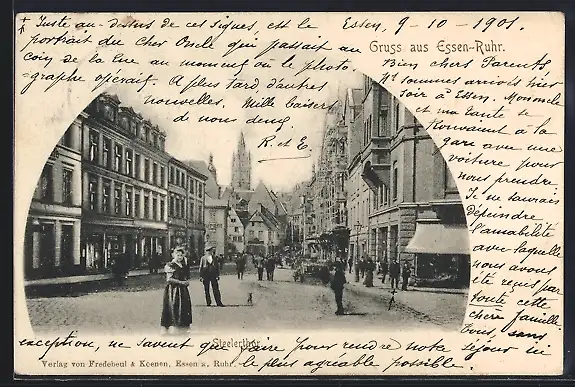 x Juste au-dessus de ces signes, est le
portrait du cher Oncle qui passait au
coin de la rue au moment où le photo-
-graphe opérait. A plus tard d'autres
nouvelles. Mille baisers
de nous deux
R. et E.
Essen, 9-10-1901.
Gruss aus Essen-Ruhr.
Bien chers Parents,
Ns sommes arrivés hier
soir à Essen. Mon oncle
et ma tante se
trouvaient à la
gare avec une
voiture pour
nous prendre.
Je ne saurais
dépeindre
l'amabilité
avec laquelle
nous avons
été reçus par
toute cette
chère famille.
Tous, sans
exception, ne savent que faire pour rendre notre séjour ici
le plus agréable possible.
Steelerthor
Verlag von Fredebeul & Koenen, Essen a. Ruhr.